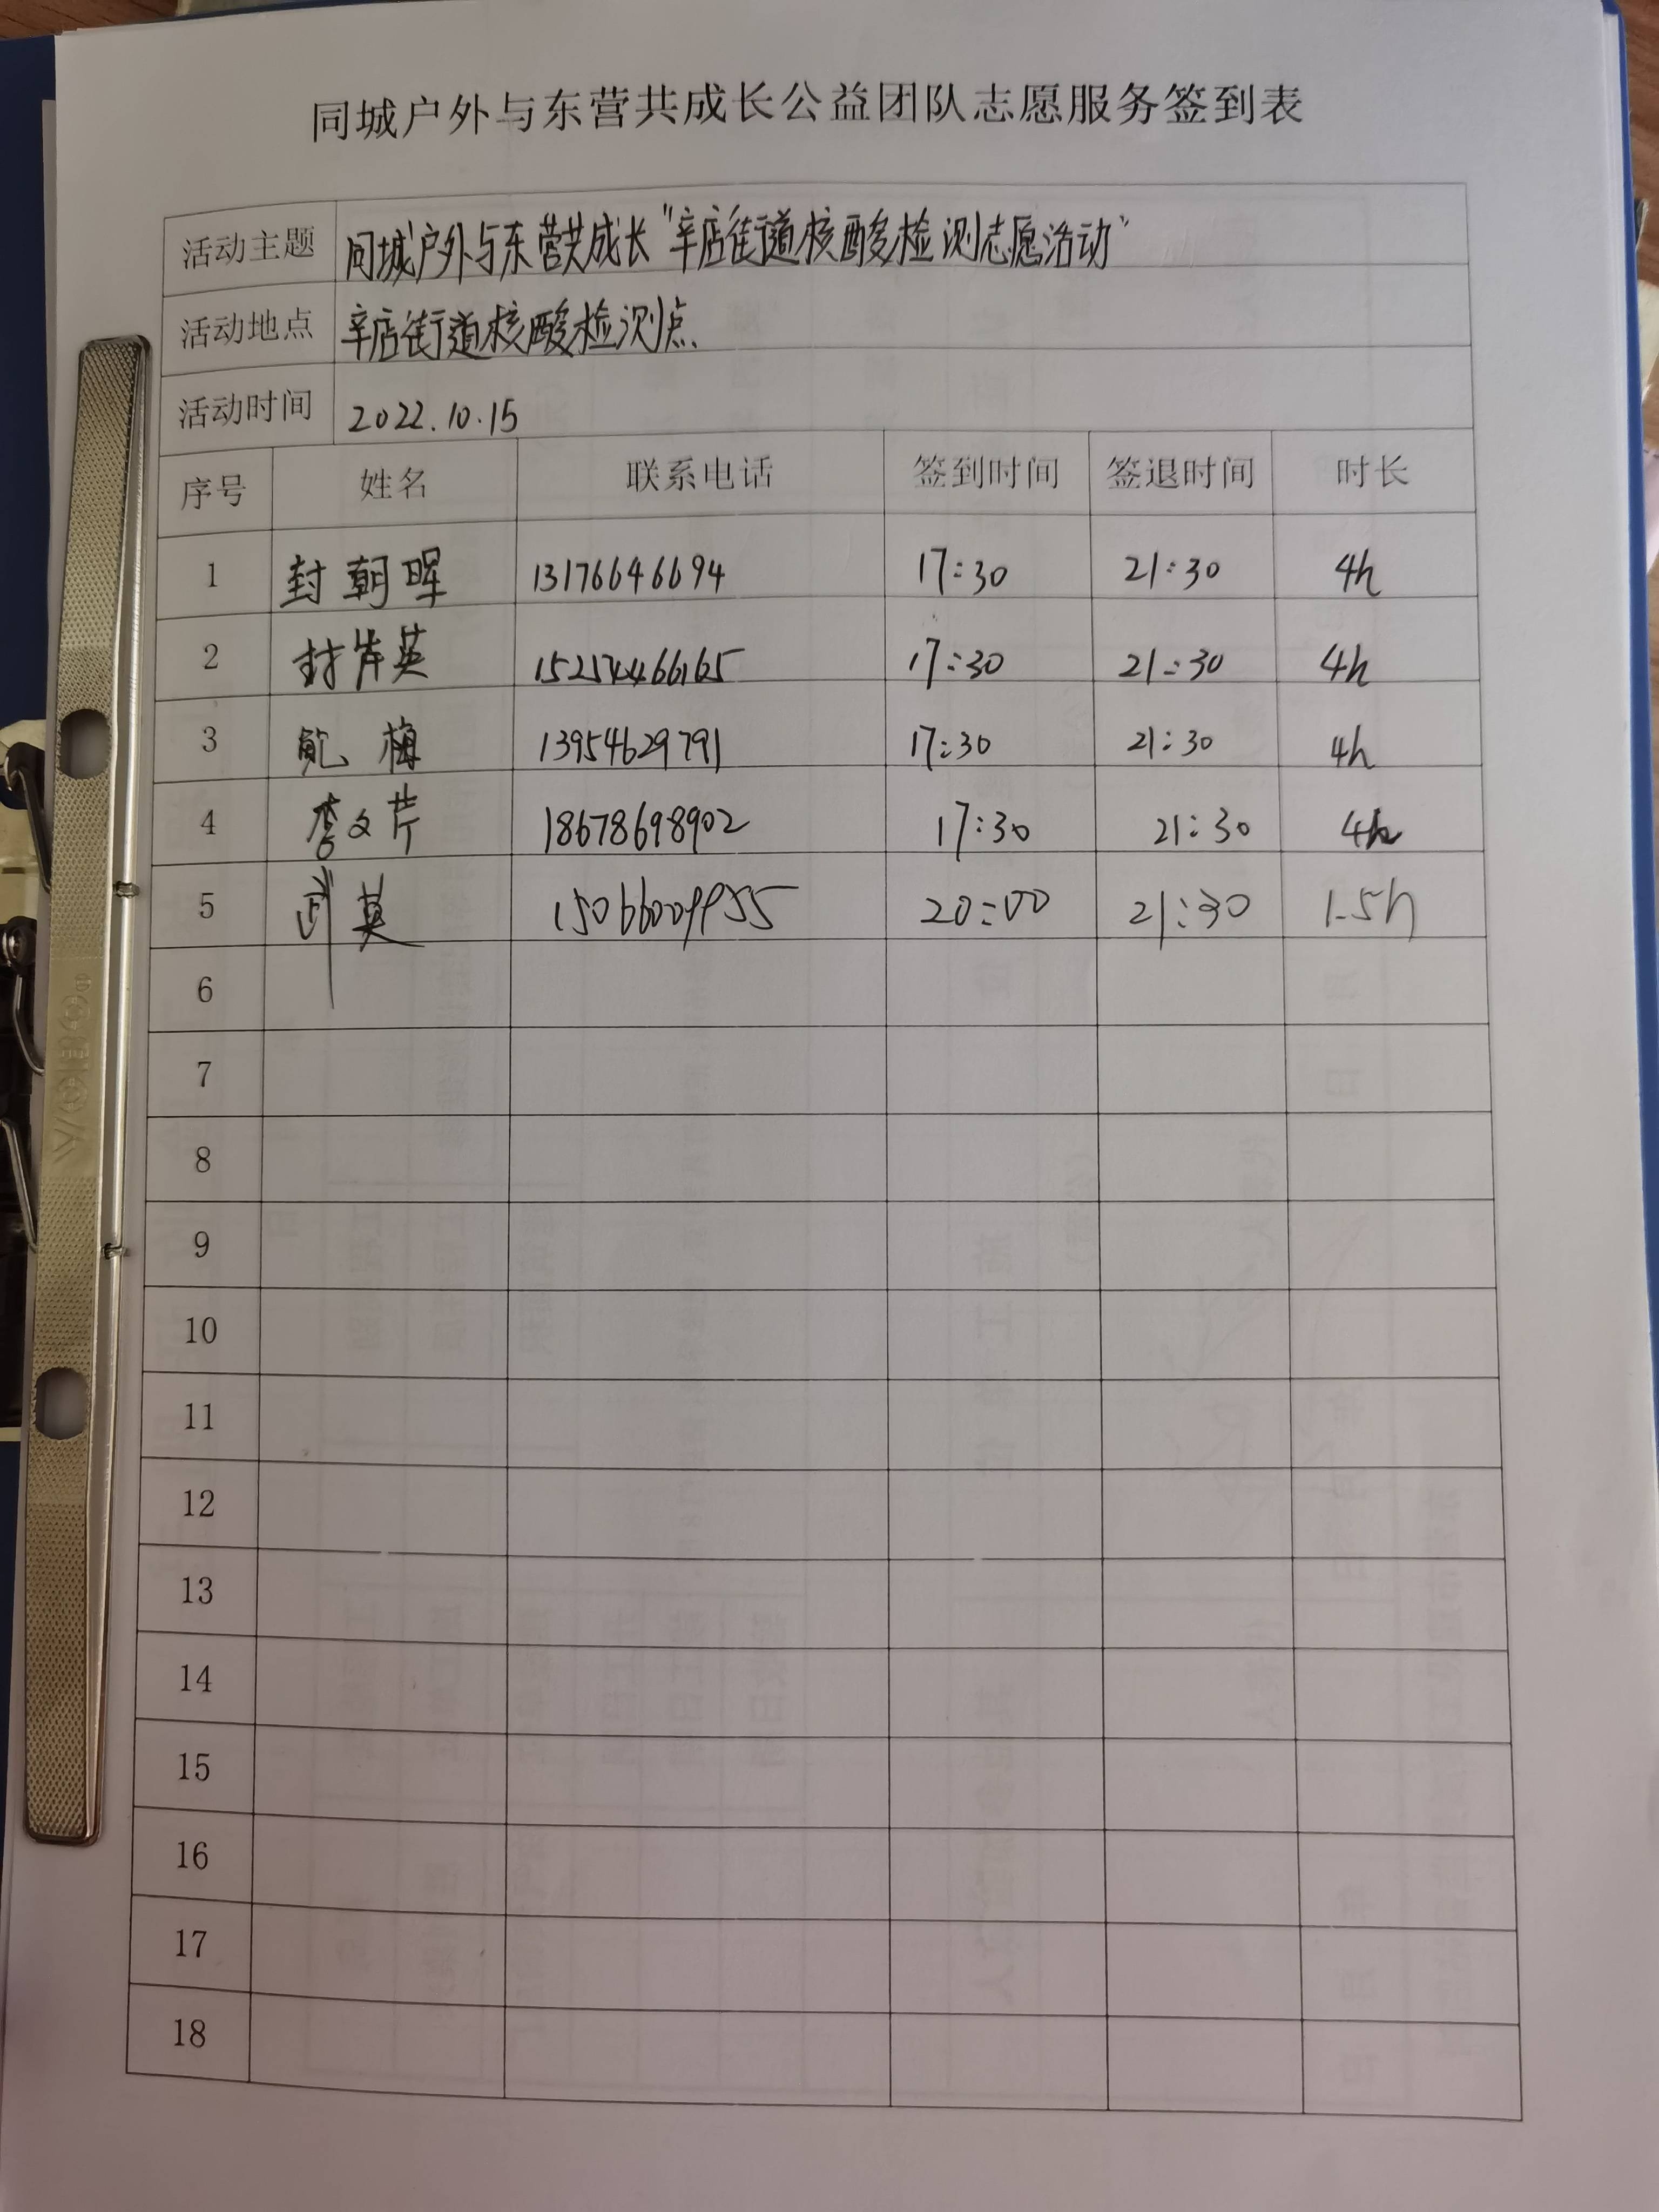 同城户外与东营共成长公益团队志愿服务签到表
活动主题 同城户外与东营共成长"辛店街道核酸检测志愿活动"
活动地点 辛店街道核酸检测点
活动时间 2022.10.15
序号 姓名 联系电话 签到时间 签退时间 时长
1 封朝晖 13176646694 17:30 21:30 4h
2 17:30 21:30 4h
3 梅 13954629791 17:30 21:30 4h
4 李文芹 18678698902 17:30 21:30 4h
5 武英 20:00 21:30 1.5h
6
7
8
9
10
11
12
13
14
15
16
17
18